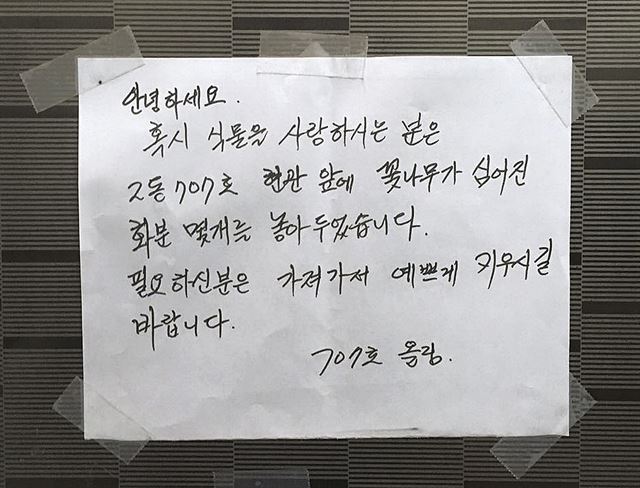 안녕하세요.
혹시 식물을 사랑하시는 분은
2동 707호 현관 앞에 꽃나무가 심어진
화분 몇개를 놓아 두었습니다.
필요하신분은 가져가서 예쁘게 키우시길
바랍니다.
707호 올림.